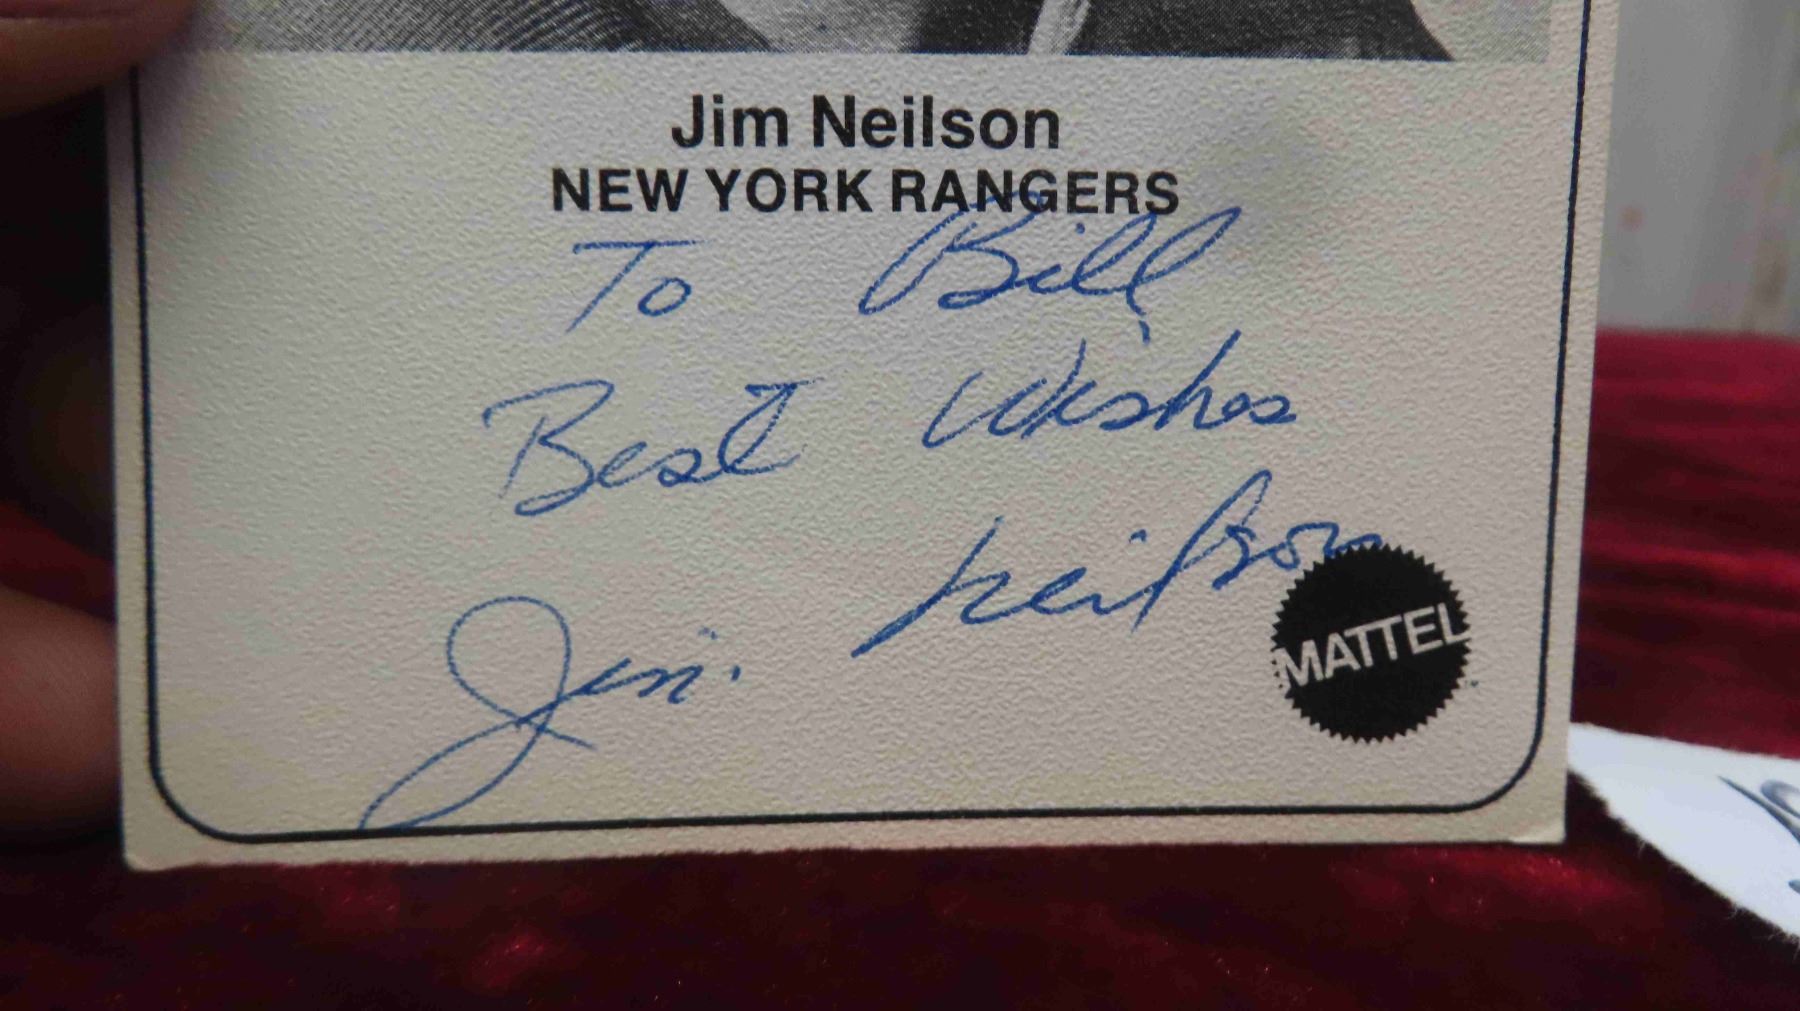 Jim Neilson
NEW YORK RANGERS
To Bill
Best Wishes
Jim Neilson
MATTEL